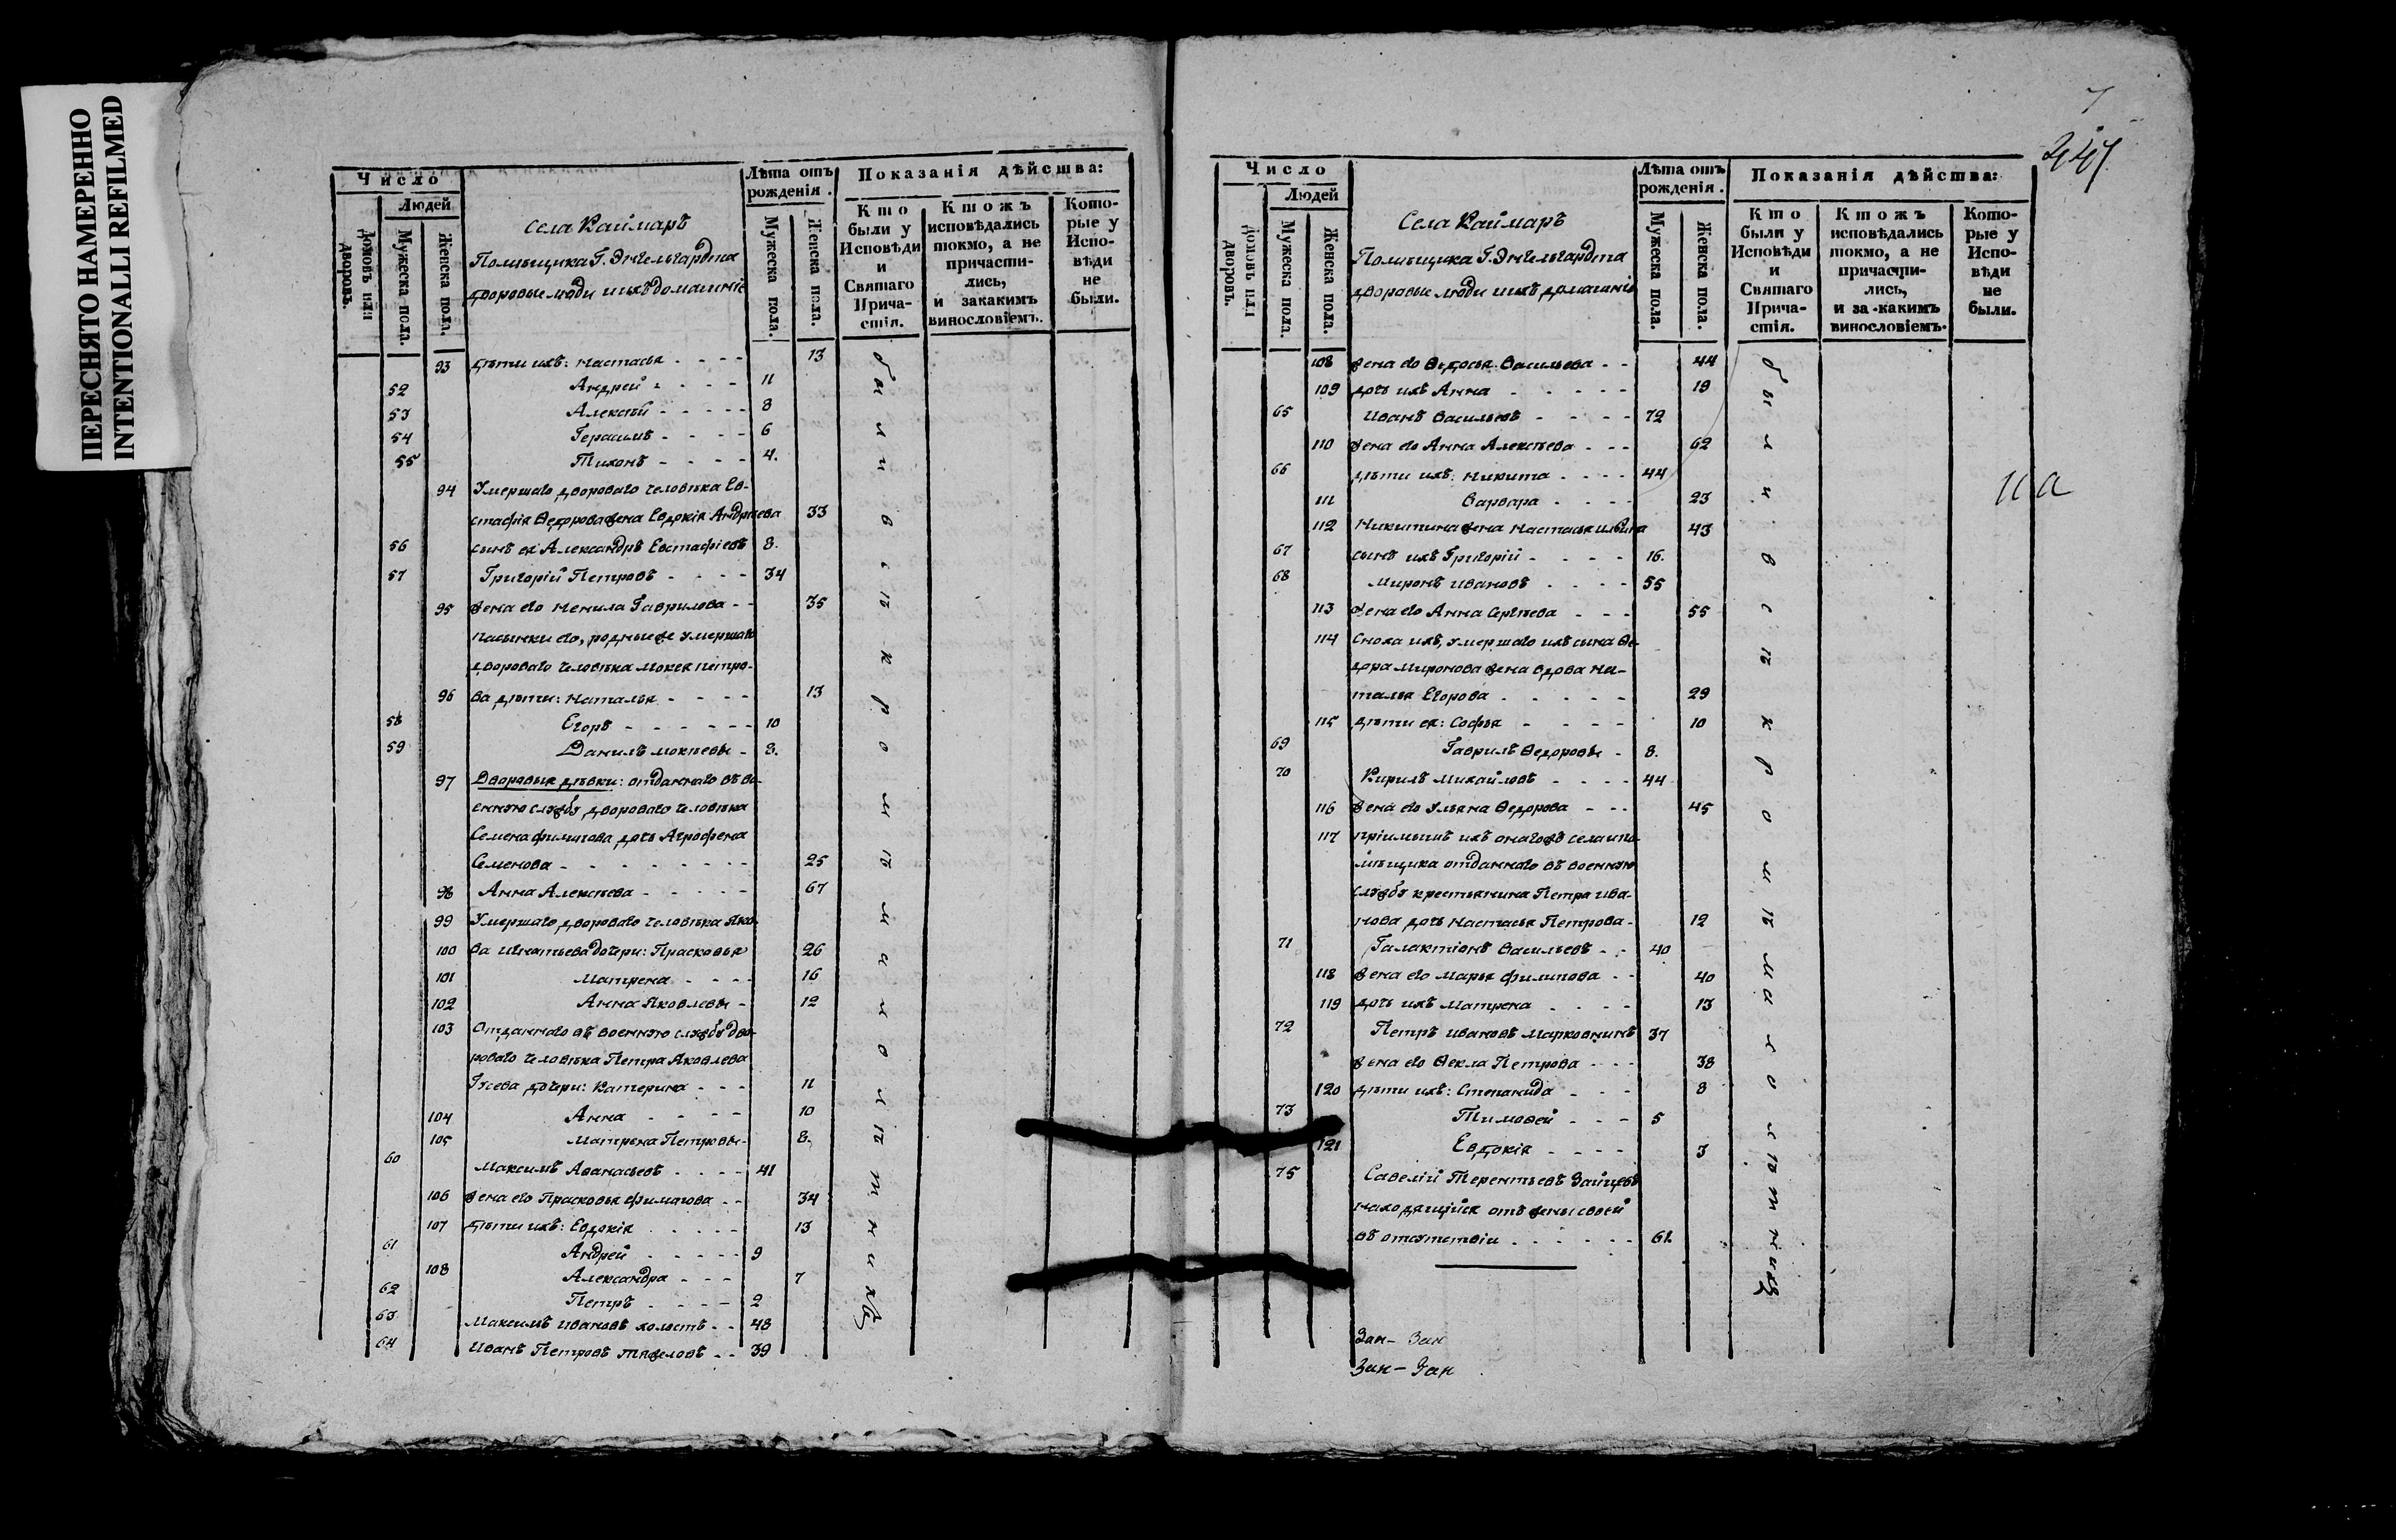 ПЕРЕСНЯТО НАМЕРЕННО
INTENTIONALLI REFILMED
Число
Людей
домовъ или дворовъ.
Мужеска пола.
Женска пола.
села Каймаръ
Помѣщика Г. Энгельгардта
дворовые люди и ихъ домашніе
Лѣта отъ рожденія.
Мужеска пола.
Женска пола.
Показанія дѣйства:
Кто были у Исповѣди и Святаго Причастія.
Ктожъ исповѣдались токмо, а не причастились, и закакимъ винословіемъ.
Которые у Исповѣди не были.
93 дѣти ихъ: Настасья - - - - 13
52 Андрей - - - - 11
53 Алексѣй - - - - - 8
54 Герасимъ - - - - 6
55 Тихонъ - - - - 4.
94 Умершаго двороваго человѣка Ев-
стафія Ѳедорова жена Евдокія Андреева 33
56 сынъ ея Александръ Евстафіевъ 8.
57 Григорій Петровъ - - - - 34
95 жена его Ненила Гаврилова - - 35
пасынки его, родные же умершаго
двороваго человѣка Мокея Петро-
96 ва дѣти: Наталья - - - - 13
58 Егоръ - - - - - - 10
59 Данилъ Мокѣевы - 8.
97 Дворовыя дѣвки: отданнаго въ во-
енную службу двороваго человѣка
Семена Филипова дочь Агрофена
Семенова - - - - - - - - 25
98 Анна Алексѣева - - - - - 67
99 Умершаго двороваго человѣка Яко-
100 ва Игнатьева дочери: Прасковья 26
101 Матрена - - - - 16
102 Анна Яковлевы - 12
103 Отданнаго въ военную службу дво-
роваго человѣка Петра Яковлева
Гусева дочери: Катерина - - - 11
104 Анна - - - - 10
105 Матрена Петровы - 8.
60 Максимъ Аѳанасьевъ - - - - 41
106 жена его Прасковья Филипова - - 34
107 дѣти ихъ: Евдокія - - - - - 13
61 Андрей - - - - - 9
108 Александра - - - 7
62 Петръ - - - - 2
63 Максимъ Ивановъ холостъ - - 48
64 Иванъ Петровъ Тяжеловъ - - 39
были въ сѣкромѣманолѣтникъ
Число
Людей
домовъ или дворовъ.
Мужеска пола.
Женска пола.
Села Каймаръ
Помѣщика Г. Энгельгардта
дворовые люди и ихъ домашніе
Лѣта отъ рожденія.
Мужеска пола.
Женска пола.
Показанія дѣйства:
Кто были у Исповѣди и Святаго Причастія.
Ктожъ исповѣдались токмо, а не причастились, и за какимъ винословіемъ.
Которые у Исповѣди не были.
108 жена его Ѳедосья Васильева - - 44
109 дочь ихъ Анна - - - - - 19
65 Иванъ Васильевъ - - - - 72
110 жена его Анна Алексѣева - - - 62
66 дѣти ихъ: Никита - - - - 44
111 Варвара - - - - 23
112 Никитина жена Настасья Ильина 43
67 сынъ ихъ Григорій - - - - 16.
68 Миронъ Ивановъ - - - - 55
113 жена его Анна Сергѣева - - - 55
114 Сноха ихъ, умершаго ихъ сына Ѳе-
дора Миронова жена вдова На-
талья Егорова - - - - - 29
115 дѣти ея: Софья - - - - 10
69 Гаврилъ Ѳедоровы - 8.
70 Кирилъ Михайловъ - - - - 44
116 жена его Ульяна Ѳедорова - - - 45
117 пріимышъ ихъ онагожъ села и по-
мѣщика отданнаго въ военную
службу крестьянина Петра Ива-
нова дочь Настасья Петрова - 12
71 Галактіонъ Васильевъ - - 40
118 жена его Марья Филипова - - 40
119 дочь ихъ Матрена - - - - 13
72 Петръ Ивановъ Марковнинъ 37
жена его Ѳекла Петрова - - - - 38
120 дѣти ихъ: Степанида - - - 8
73 Тимоѳей - - - 5
121 Евдокія - - - - 3
75 Савелій Терентьевъ Зайцевъ
находящійся отъ жены своей
въ отсутствіи - - - - - - 61.
Зан - Зан
Зан - Зан